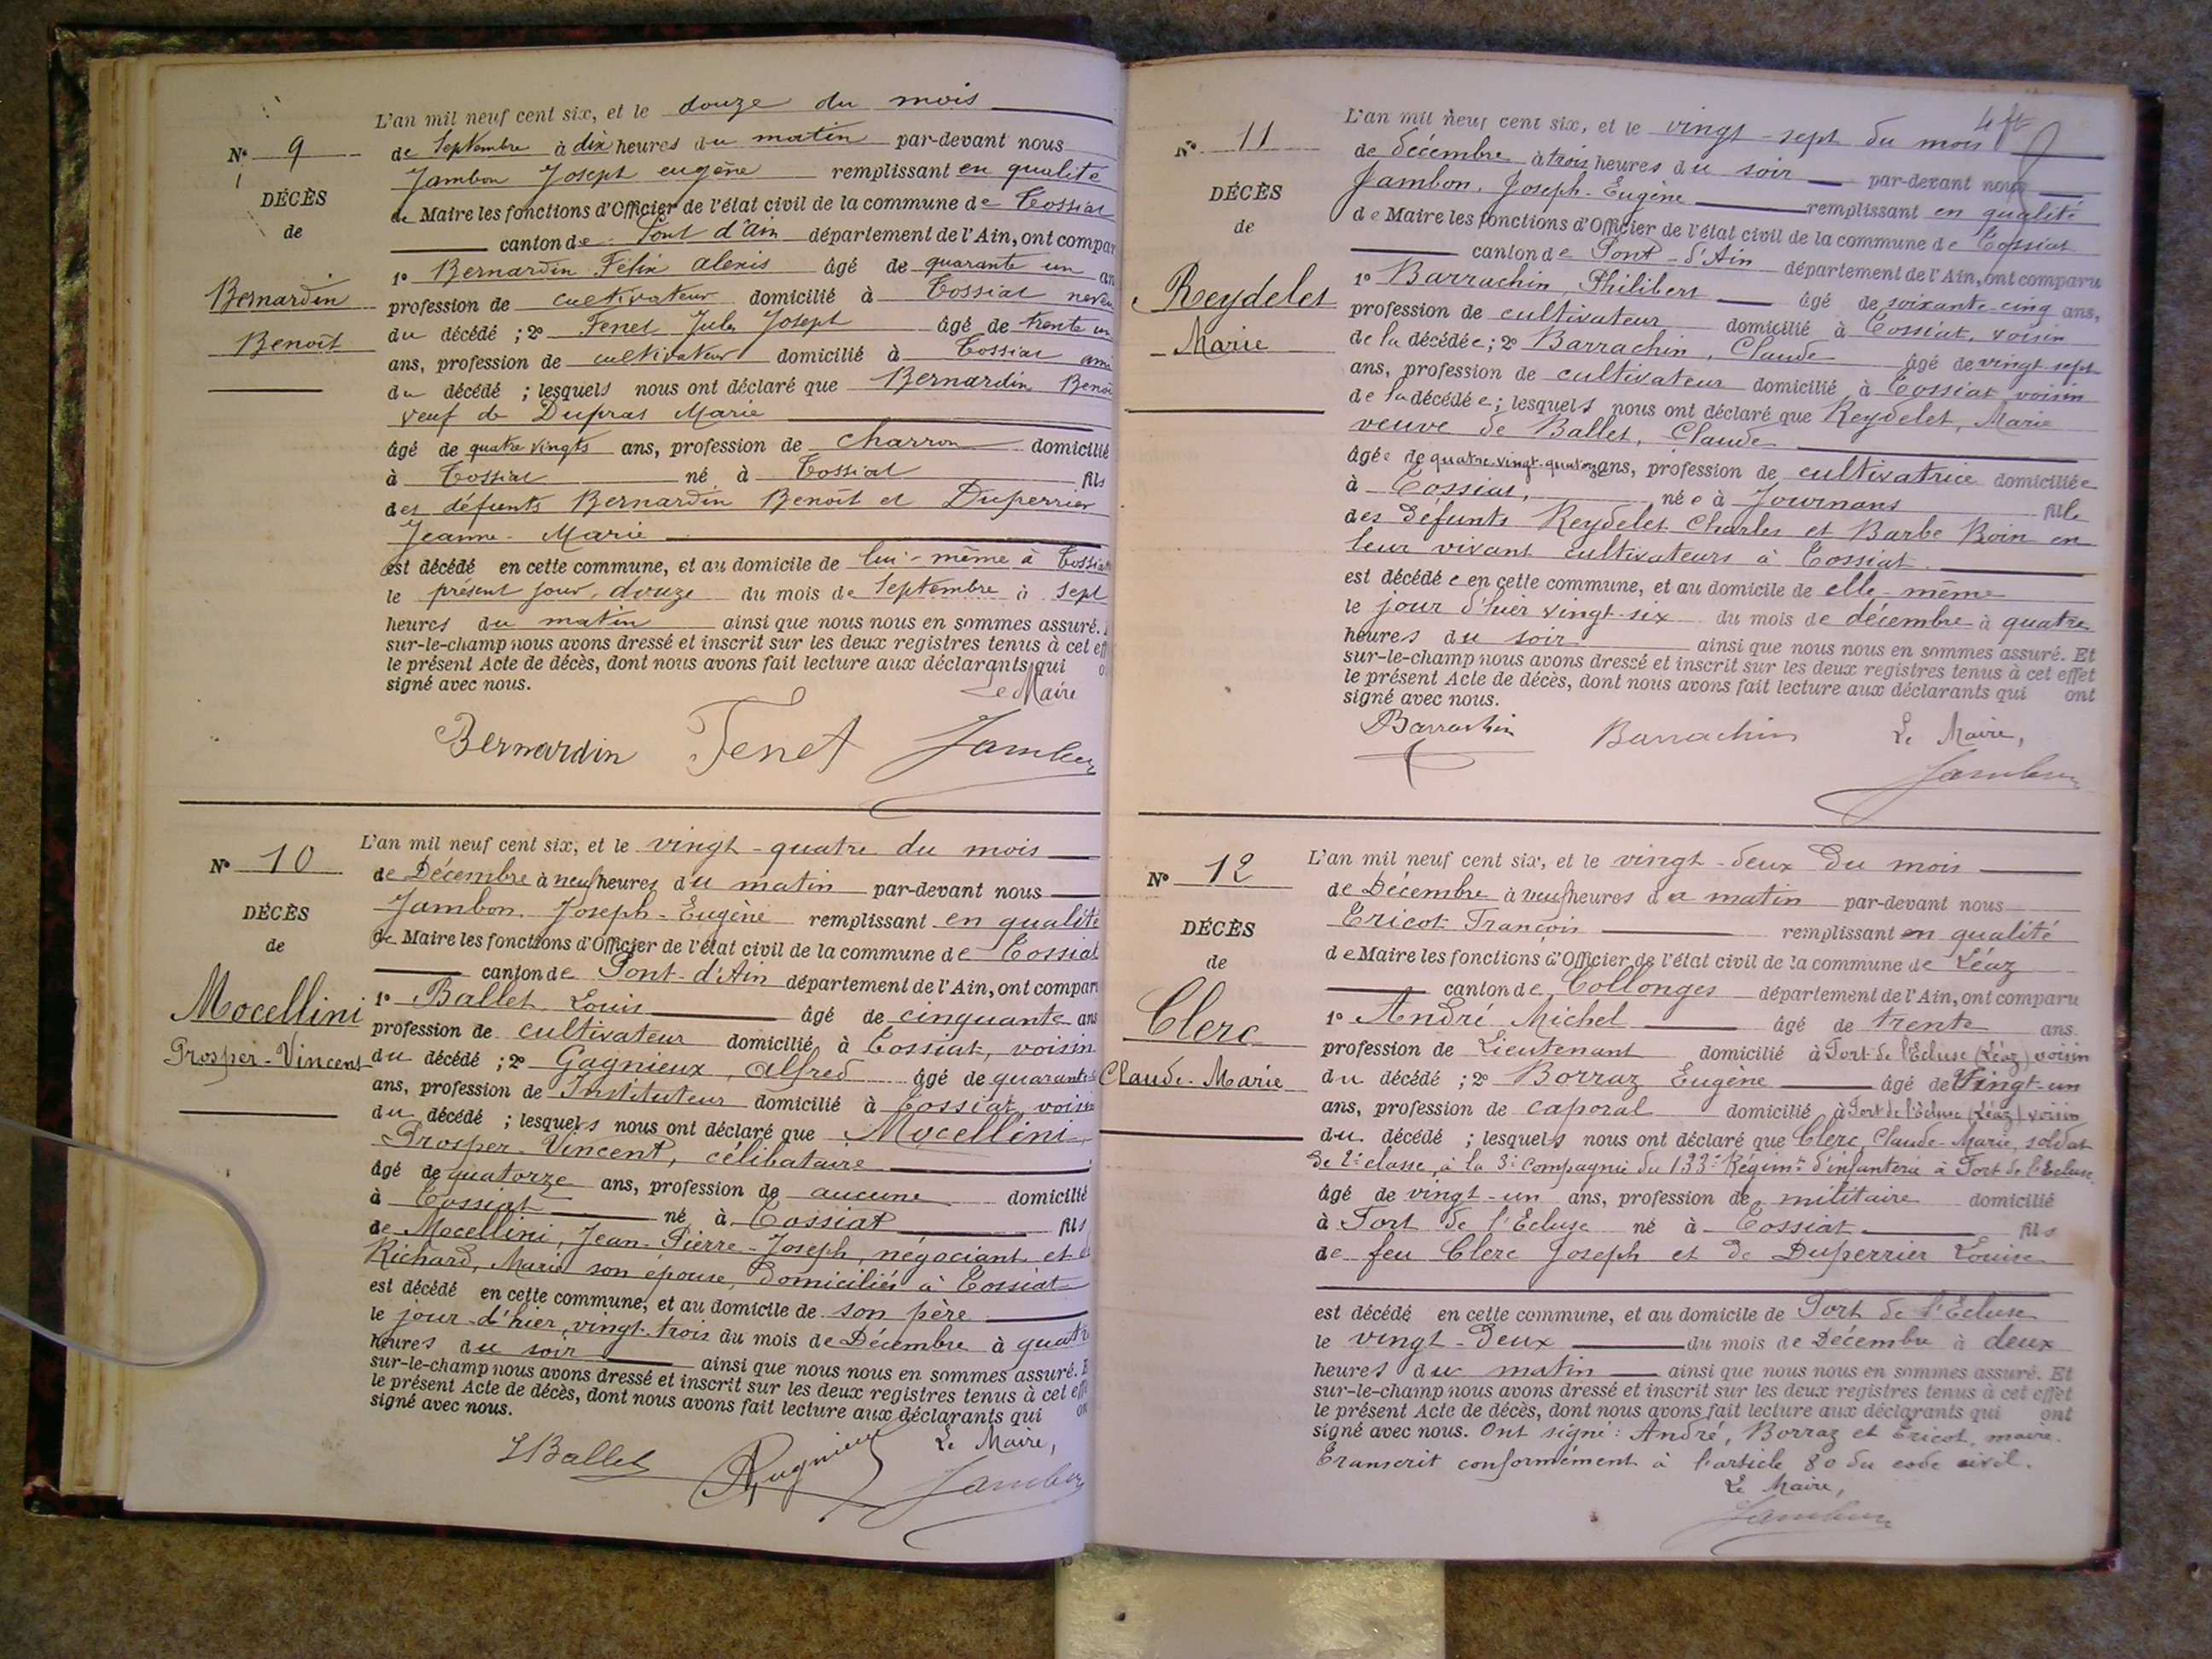 L'an mil neuf cent six, et le douze du mois
N° 9
de Septembre à dix heures du matin par-devant nous
Jambon Joseph eugène remplissant en qualité
DÉCÈS
de Maire les fonctions d'Officier de l'état civil de la commune de Tossiat
de
canton de Pont d'Ain département de l'Ain, ont compar
1° Bernardin Félix alexis âgé de quarante un an
Bernardin
profession de cultivateur domicilié à Tossiat neveu
Benoît
du décédé ; 2° Tenet Jules Joseph âgé de trente un
ans, profession de cultivateur domicilié à Tossiat ami
du décédé ; lesquels nous ont déclaré que Bernardin Benoî
veuf de Dupras Marie
âgé de quatre vingts ans, profession de charron domicilié
à Tossiat né à Tossiat fils
des défunts Bernardin Benoît et Duperrier
Jeanne-Marie
est décédé en cette commune, et au domicile de lui-même à Tossiat
le présent jour, douze du mois de Septembre à sept
heures du matin ainsi que nous nous en sommes assuré.
sur-le-champ nous avons dressé et inscrit sur les deux registres tenus à cet eff
le présent Acte de décès, dont nous avons fait lecture aux déclarants qui o
signé avec nous.
Le Maire
Bernardin Tenet Jambon
L'an mil neuf cent six, et le vingt-quatre du mois
N° 10
de Décembre à neuf heures du matin par-devant nous
Jambon Joseph-Eugène remplissant en qualité
DÉCÈS
de Maire les fonctions d'Officier de l'état civil de la commune de Tossiat
de
canton de Pont-d'Ain département de l'Ain, ont compar
Mocellini
1° Ballet Louis âgé de cinquante ans
Prosper-Vincent
profession de cultivateur domicilié à Tossiat, voisin
du décédé ; 2° Gagnieux, Alfred âgé de quarante
ans, profession de Instituteur domicilié à Tossiat, voisin
du décédé ; lesquels nous ont déclaré que Mocellini
Prosper-Vincent, célibataire
âgé de quatorze ans, profession de aucune domicilié
à Tossiat né à Tossiat fils
de Mocellini, Jean-Pierre-Joseph, négociant et de
Richard, Marie son épouse, domiciliés à Tossiat
est décédé en cette commune, et au domicile de son père
le jour d'hier, vingt-trois du mois de Décembre à quatre
heures du soir ainsi que nous nous en sommes assuré. E
sur-le-champ nous avons dressé et inscrit sur les deux registres tenus à cet effe
le présent Acte de décès, dont nous avons fait lecture aux déclarants qui on
signé avec nous.
Le Maire,
LBallet Gagnieux Jambon
4 ft
L'an mil neuf cent six, et le vingt-sept du mois
N° 11
de décembre à trois heures du soir par-devant nous
Jambon, Joseph-Eugène remplissant en qualité
DÉCÈS
de Maire les fonctions d'Officier de l'état civil de la commune de Tossiat
de
canton de Pont-d'Ain département de l'Ain, ont comparu
Reydelet
1° Barrachin, Philibert âgé de soixante-cinq ans,
Marie
profession de cultivateur domicilié à Tossiat, voisin
de la décédée ; 2° Barrachin, Claude âgé de vingt-sept
ans, profession de cultivateur domicilié à Tossiat, voisin
de la décédée ; lesquels nous ont déclaré que Reydelet, Marie
veuve de Ballet, Claude
âgée de quatre-vingt-quatorze ans, profession de cultivatrice domiciliée
à Tossiat, née à Journans fille
des défunts Reydelet Charles et Barbe Boin en
leur vivant cultivateurs à Tossiat
est décédée en cette commune, et au domicile de elle-même
le jour d'hier vingt-six du mois de décembre à quatre
heures du soir ainsi que nous nous en sommes assuré. Et
sur-le-champ nous avons dressé et inscrit sur les deux registres tenus à cet effet
le présent Acte de décès, dont nous avons fait lecture aux déclarants qui ont
signé avec nous.
Barrachin Barrachin Le Maire,
Jambon
L'an mil neuf cent six, et le vingt-deux du mois
N° 12
de Décembre à neuf heures du matin par-devant nous
Tricot François remplissant en qualité
DÉCÈS
de Maire les fonctions d'Officier de l'état civil de la commune de Léaz
de
canton de Collonges département de l'Ain, ont comparu
Clerc
1° André Michel âgé de trente ans.
profession de Lieutenant domicilié à Fort-de l'Ecluse (Léaz) voisin
Claude-Marie
du décédé ; 2° Borraz Eugène âgé de Vingt-un
ans, profession de caporal domicilié à Fort de l'Ecluse (Léaz) voisin
du décédé ; lesquels nous ont déclaré que Clerc, Claude-Marie, soldat
de 2e classe, à la 3e Compagnie du 133e Régimt d'infanterie à Fort de l'Ecluse
âgé de vingt-un ans, profession de militaire domicilié
à Fort de l'Ecluse né à Tossiat fils
de feu Clerc Joseph et de Duperrier Louise
est décédé en cette commune, et au domicile de Fort de l'Ecluse
le vingt-deux du mois de Décembre à deux
heures du matin ainsi que nous nous en sommes assuré. Et
sur-le-champ nous avons dressé et inscrit sur les deux registres tenus à cet effet
le présent Acte de décès, dont nous avons fait lecture aux déclarants qui ont
signé avec nous. Ont signé : André, Borraz et Tricot, maire.
Transcrit conformément à l'article 80 du code civil.
Le Maire,
Jambon